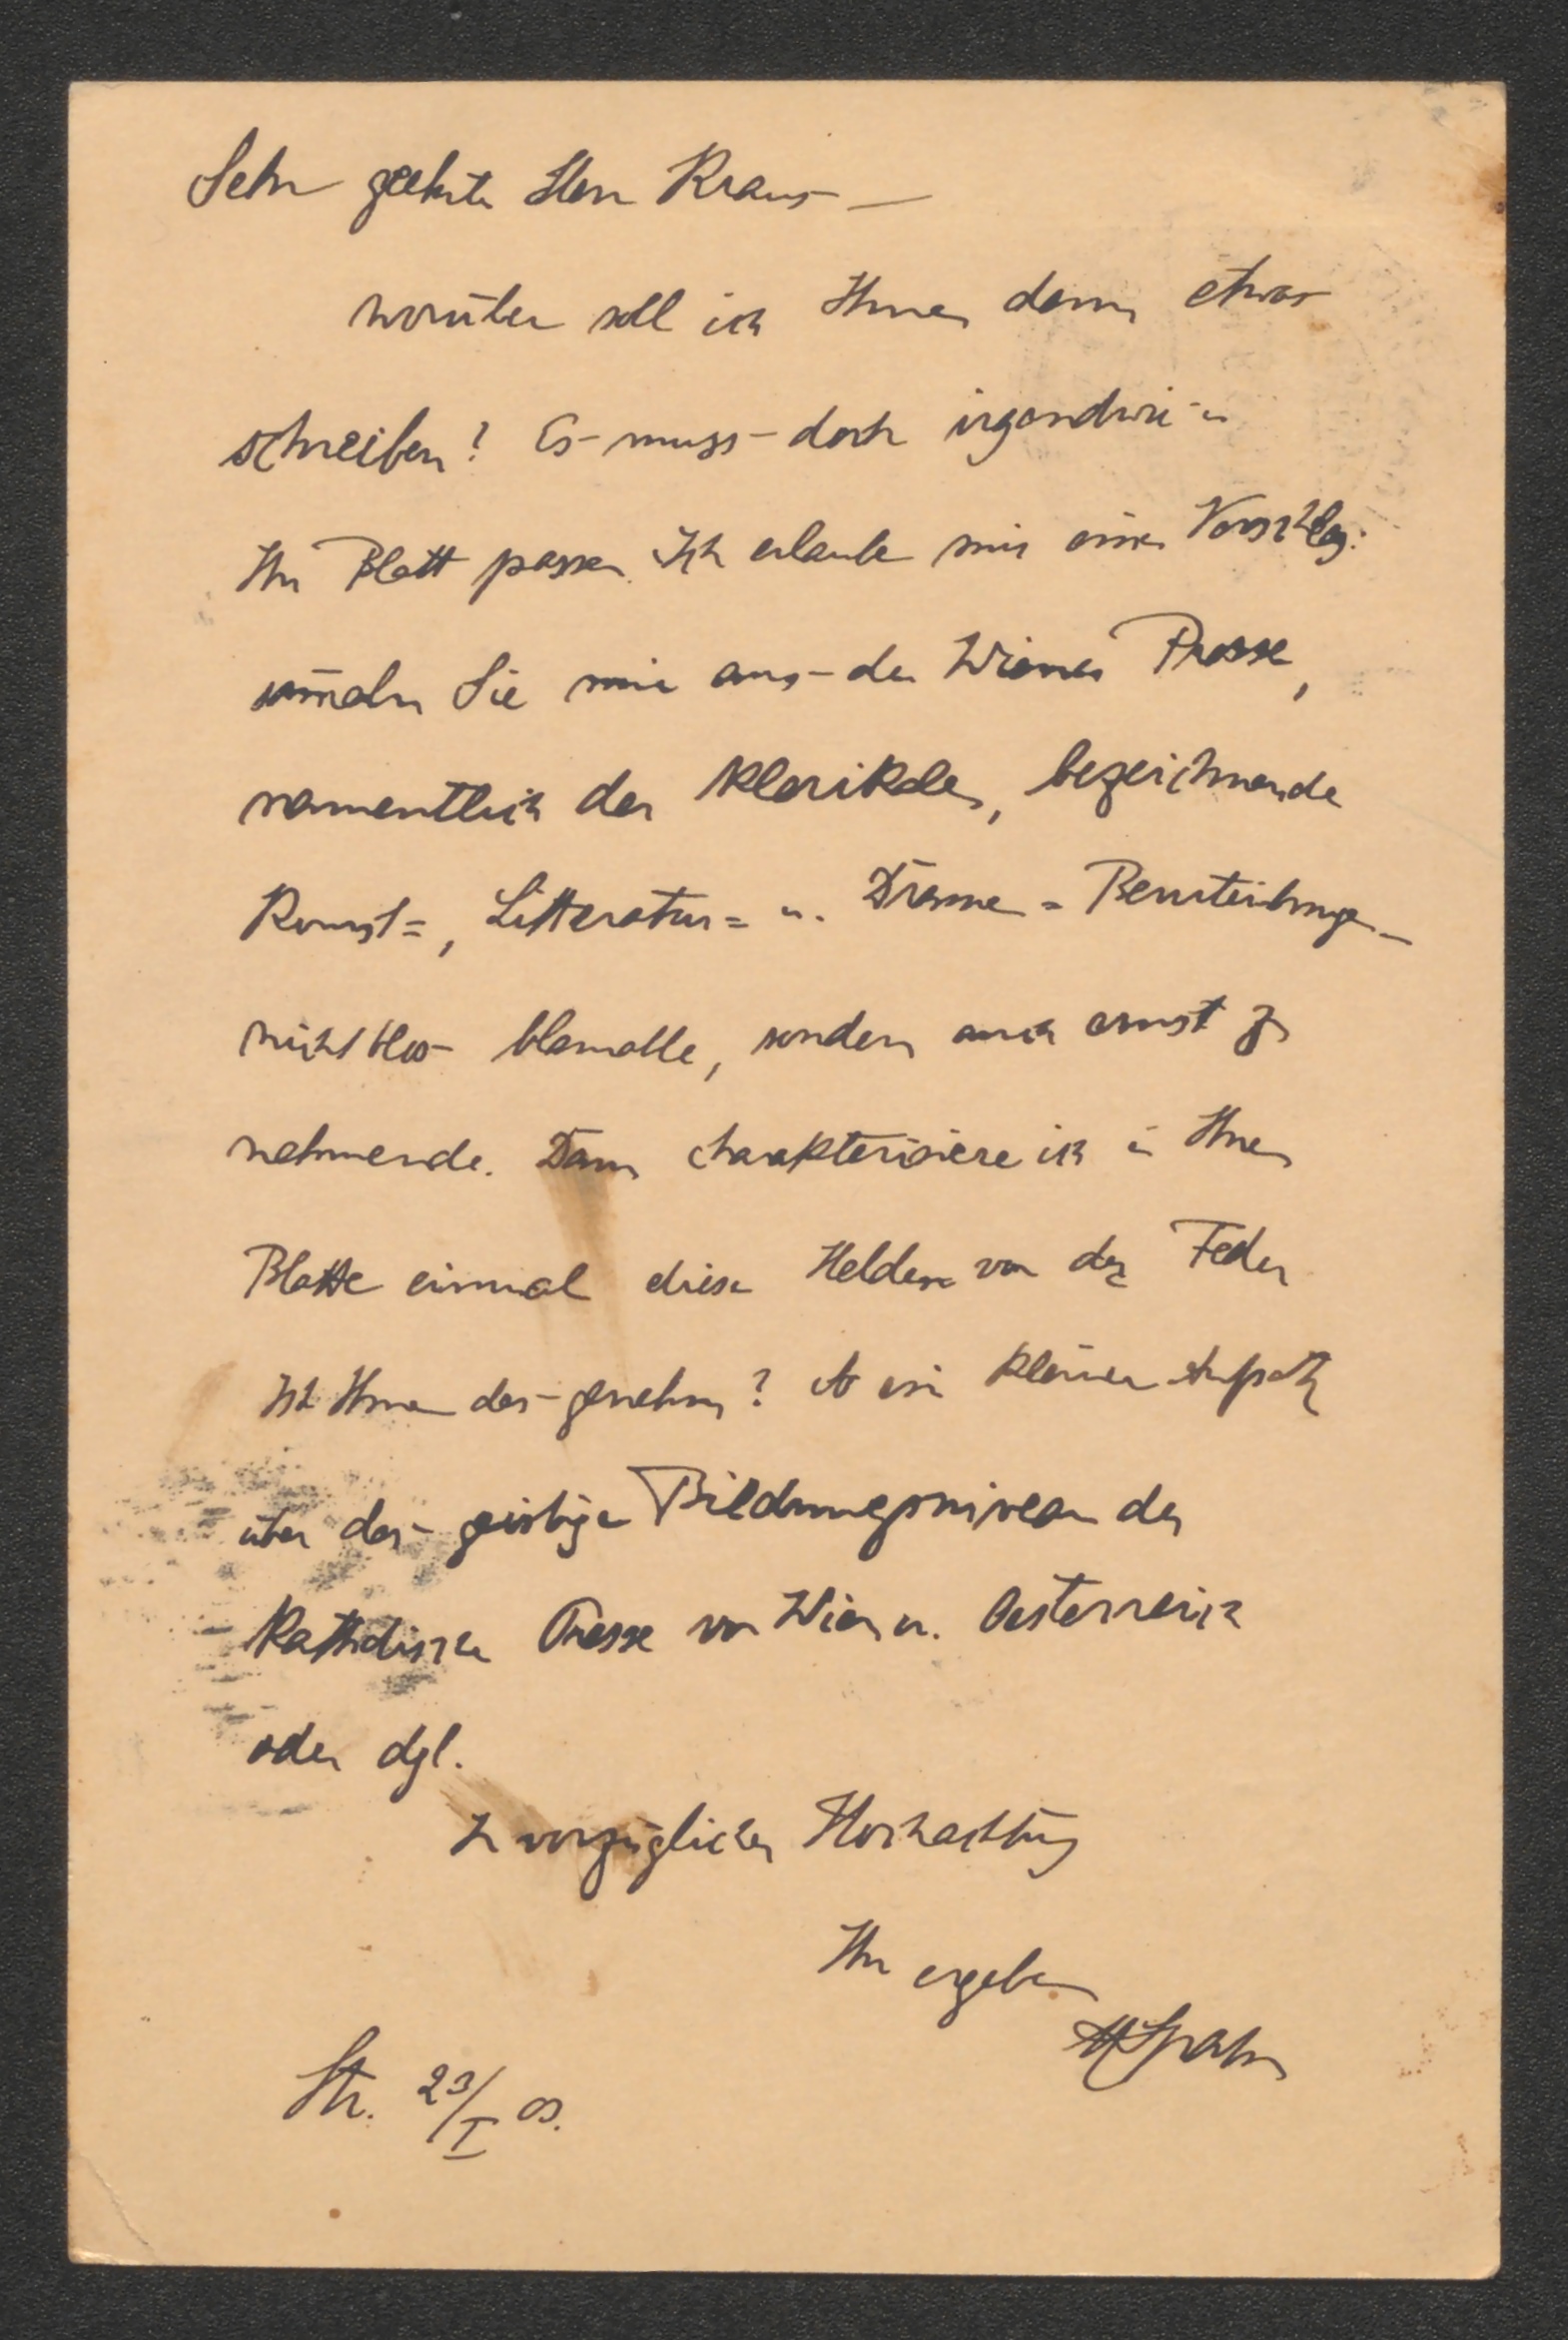 Sehr geehrter Herr Kraus –
worüber soll ich Ihnen denn etwas
schreiben? Es muss doch irgendwie in
Ihr Blatt passen. Ich erlaube mir einen Vorschlag:
sam̅eln Sie mir aus der Wiener Presse,
namentlich der klerikalen, bezeichnende
Kunst=, Litteratur= u. Drama=Beurteilungen –
nicht blos blamable, sondern auch ernst zu
nehmende. Dann charakterisiere ich in Ihrem
Blatte einmal diese Helden von der Feder
Ist Ihnen das genehm? So ein kleiner Aufsatz
über das geistige Bildungsniveau der
Katholischen Presse von Wien u. Oesterreich
oder dgl.
In vorzüglicher Hochachtung
Ihr ergebener
MSpahn
Str. 23/I 03.